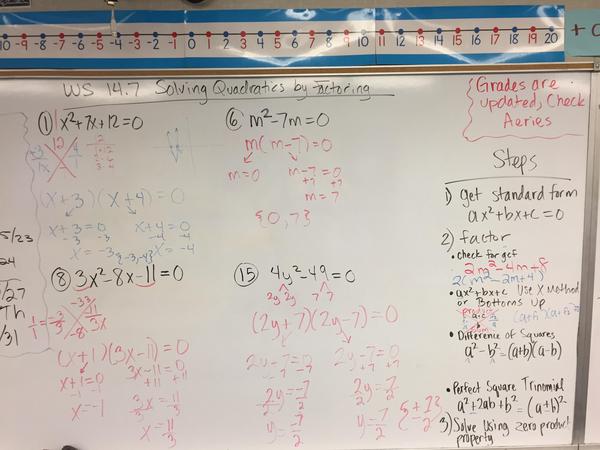 10 -9 -8 -7 -6 -5 -4 -3 -2 -1 0 1 2 3 4 5 6 7 8 9 10 11 12 13 14 15 16 17 18 19 20
WS 14.7 Solving Quadratics by Factoring
① x²+7x+12=0
12
(x+3)(x+4)=0
x+3=0 x+4=0
-3 -3 -4 -4
x=-3 x=-4
{-3,-4}
⑥ m²-7m=0
m(m-7)=0
m=0 m-7=0
+7 +7
m=7
{0,7}
⑧ 3x²-8x-11=0
-33
-11
3x
-8
(x+1)(3x-11)=0
x+1=0 3x-11=0
-1 -1 +11 +11
x=-1 3x=11
3 3
x=11/3
⑮ 4y²-49=0
2y 2y 7 7
(2y+7)(2y-7)=0
2y-7=0 2y-7=0
2y=-7 2y=-7
2 2 2 2
y=-7/2 y=7/2
Grades are
updated, Check
Aeries
Steps
1) get standard form
ax²+bx+c=0
2) factor
• check for gcf
2m²-4m+8
2(m²-2m+4)
• ax²+bx+c Use X Method
or Bottoms Up
product
a•c
• Difference of Squares
a²-b²=(a+b)(a-b)
• Perfect Square Trinomial
a²±2ab+b²=(a±b)²
3) Solve using zero product
property
5/23
24
5/27
Th
5/31